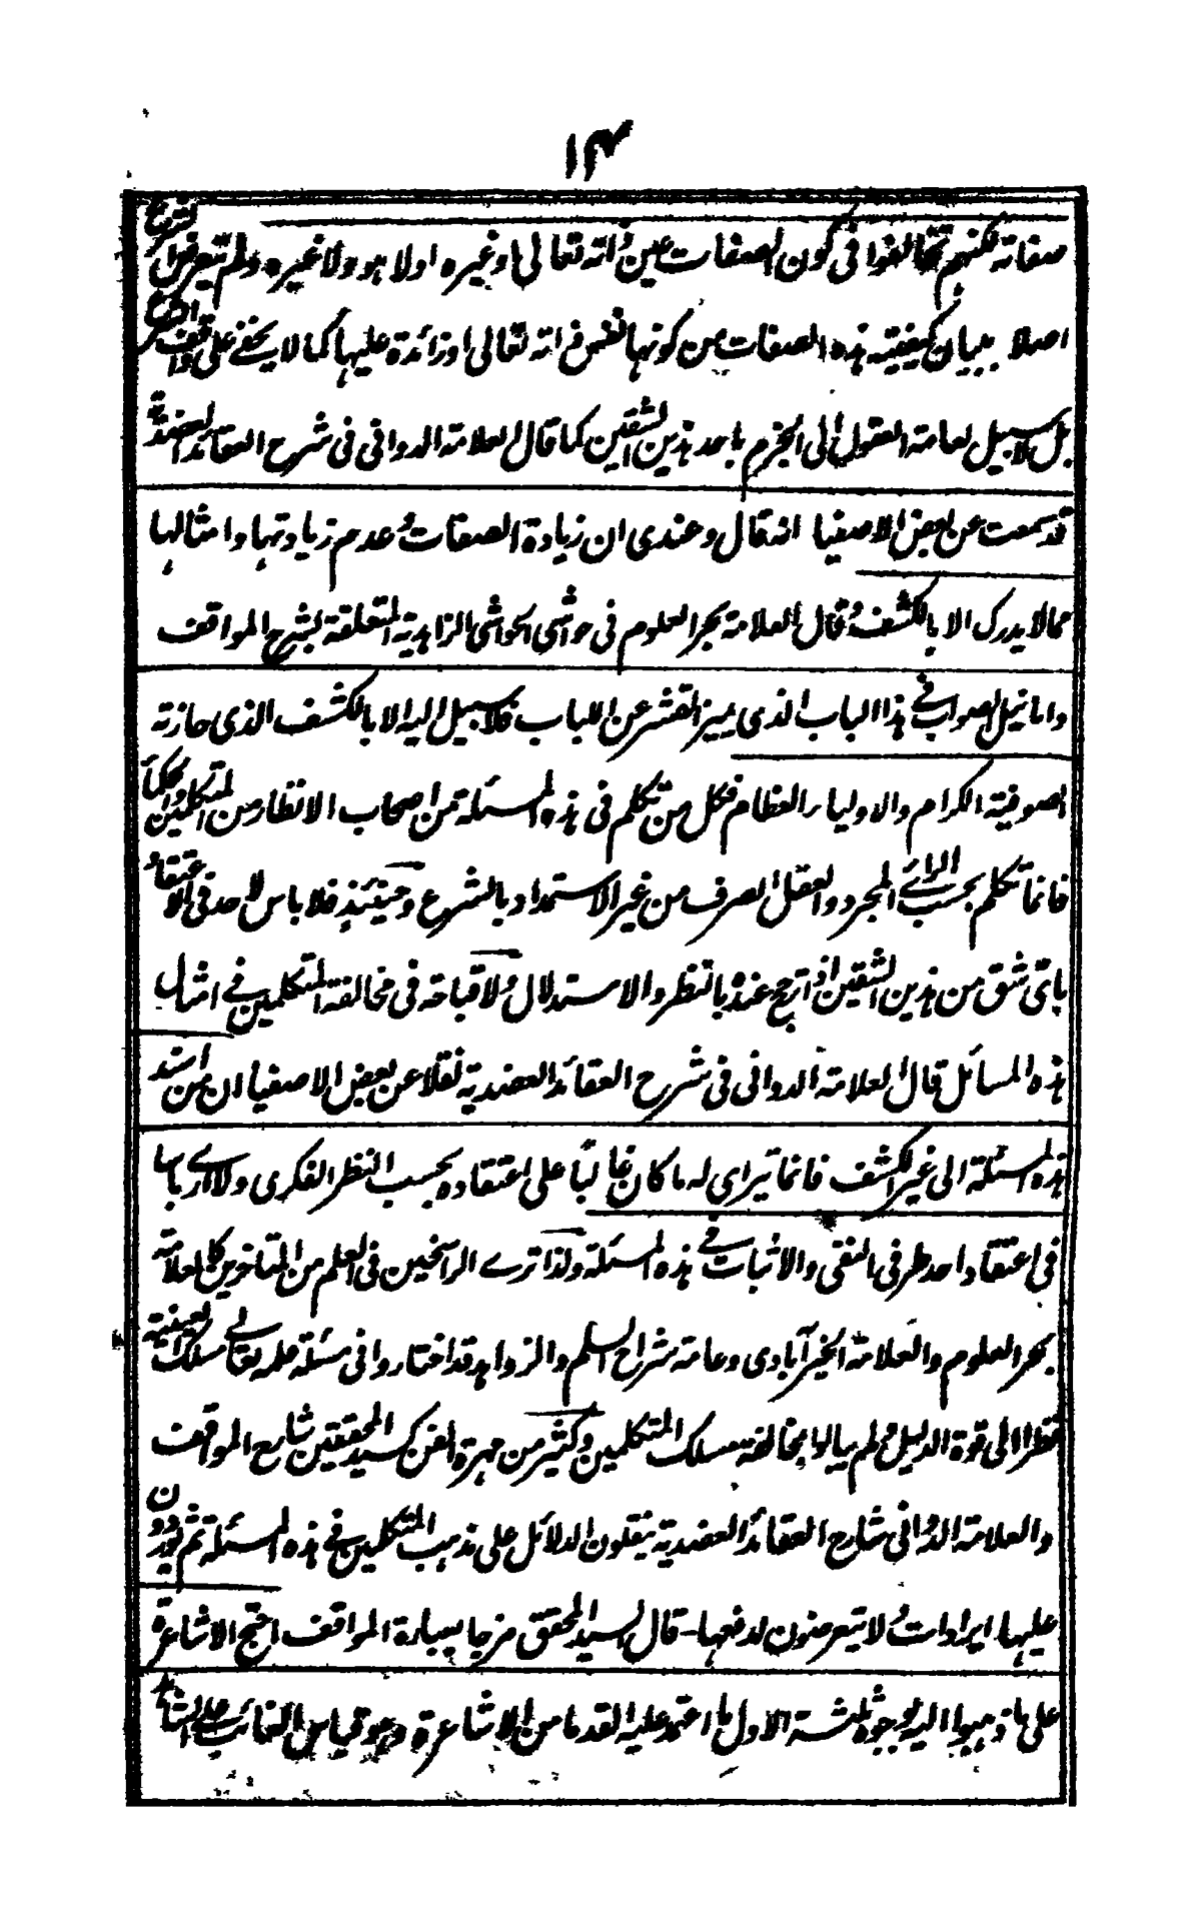 ۱۴
صفاته لكنهم تخالفوا فى كون الصفات عين ذاته تعالى او غيره اولا هو ولا غيره ولم يتعرض الشرع
اصلا ببيان كيفية هذه الصفات من كونها نفس ذاته تعالى او زائدة عليها كما لا يخفے على واقف الشرع
بل لا سبيل لعامة العقول الى الجزم باحد هذين الشقين كما قال العلامة الدوانى فى شرح العقائد العضدية
قد سمعت عن بعض الاصفيا انه قال وعندى ان زيادة الصفات و عدم زيادتها وامثالها
مما لا يدرك الا بالكشف و قال العلامة بحر العلوم فى حواشى الحواشى الزاهدية المتعلقة بشرح المواقف
واما نيل الصواب فے هذا الباب الذى يميز القشر عن اللباب فلا سبيل اليه الا بالكشف الذى حازته
الصوفية الكرام والاولياء العظام فكل من تكلم فى هذه المسئلة من اصحاب الانظار من المتكلمين والحكماء
فانما تكلم بحسب الرائے المجرد والعقل الصرف من غير الاستمداد بالشرع وحينئذ فلا باس لاحد فى الاعتقاد
باىّ شق من هذين الشقين اذا ترجح عنده بالنظر والاستدلال و لا قباحة فى مخالفة المتكلمين فے امثال
هذه المسائل قال العلامة الدوانى فى شرح العقائد العضدية نقلا عن بعض الاصفيا ان من اسند
هذه المسئلة الى غير الكشف فانما يتراى له ما كان غالبًا على اعتقاده بحسب النظر الفكرى ولا ارے باسا
فى اعتقاد احد طرفى النفى والاثبات فے هذه المسئلة ولذا ترے الراسخين فى العلم من المتاخرين كالعلامة
بحر العلوم والعلامة الخير آبادى وعامة شراح السلم والزواهد قد اختاروا فى مسئلة علمه تعالے مسلك العينية
نظرا الى قوة الدليل ولم يبالوا بمخالفة مسلك المتكلمين وكثير من مهرة الفن كسيد المحققين شارح المواقف
والعلامة الدوانى شارح العقائد العضدية ينقلون الدلائل على مذهب المتكلمين فے هذه المسئلة ثم يوردون
عليها ايرادات و لا يتعرضون لدفعها۔ قال السيد المحقق مزجا بعبارة المواقف احتج الاشاعرة
على ما ذهبوا اليه بوجوه ثلثة الاول ما اعتمد عليه القدما من الاشاعرة وهو قياس الغائب على الشاهد